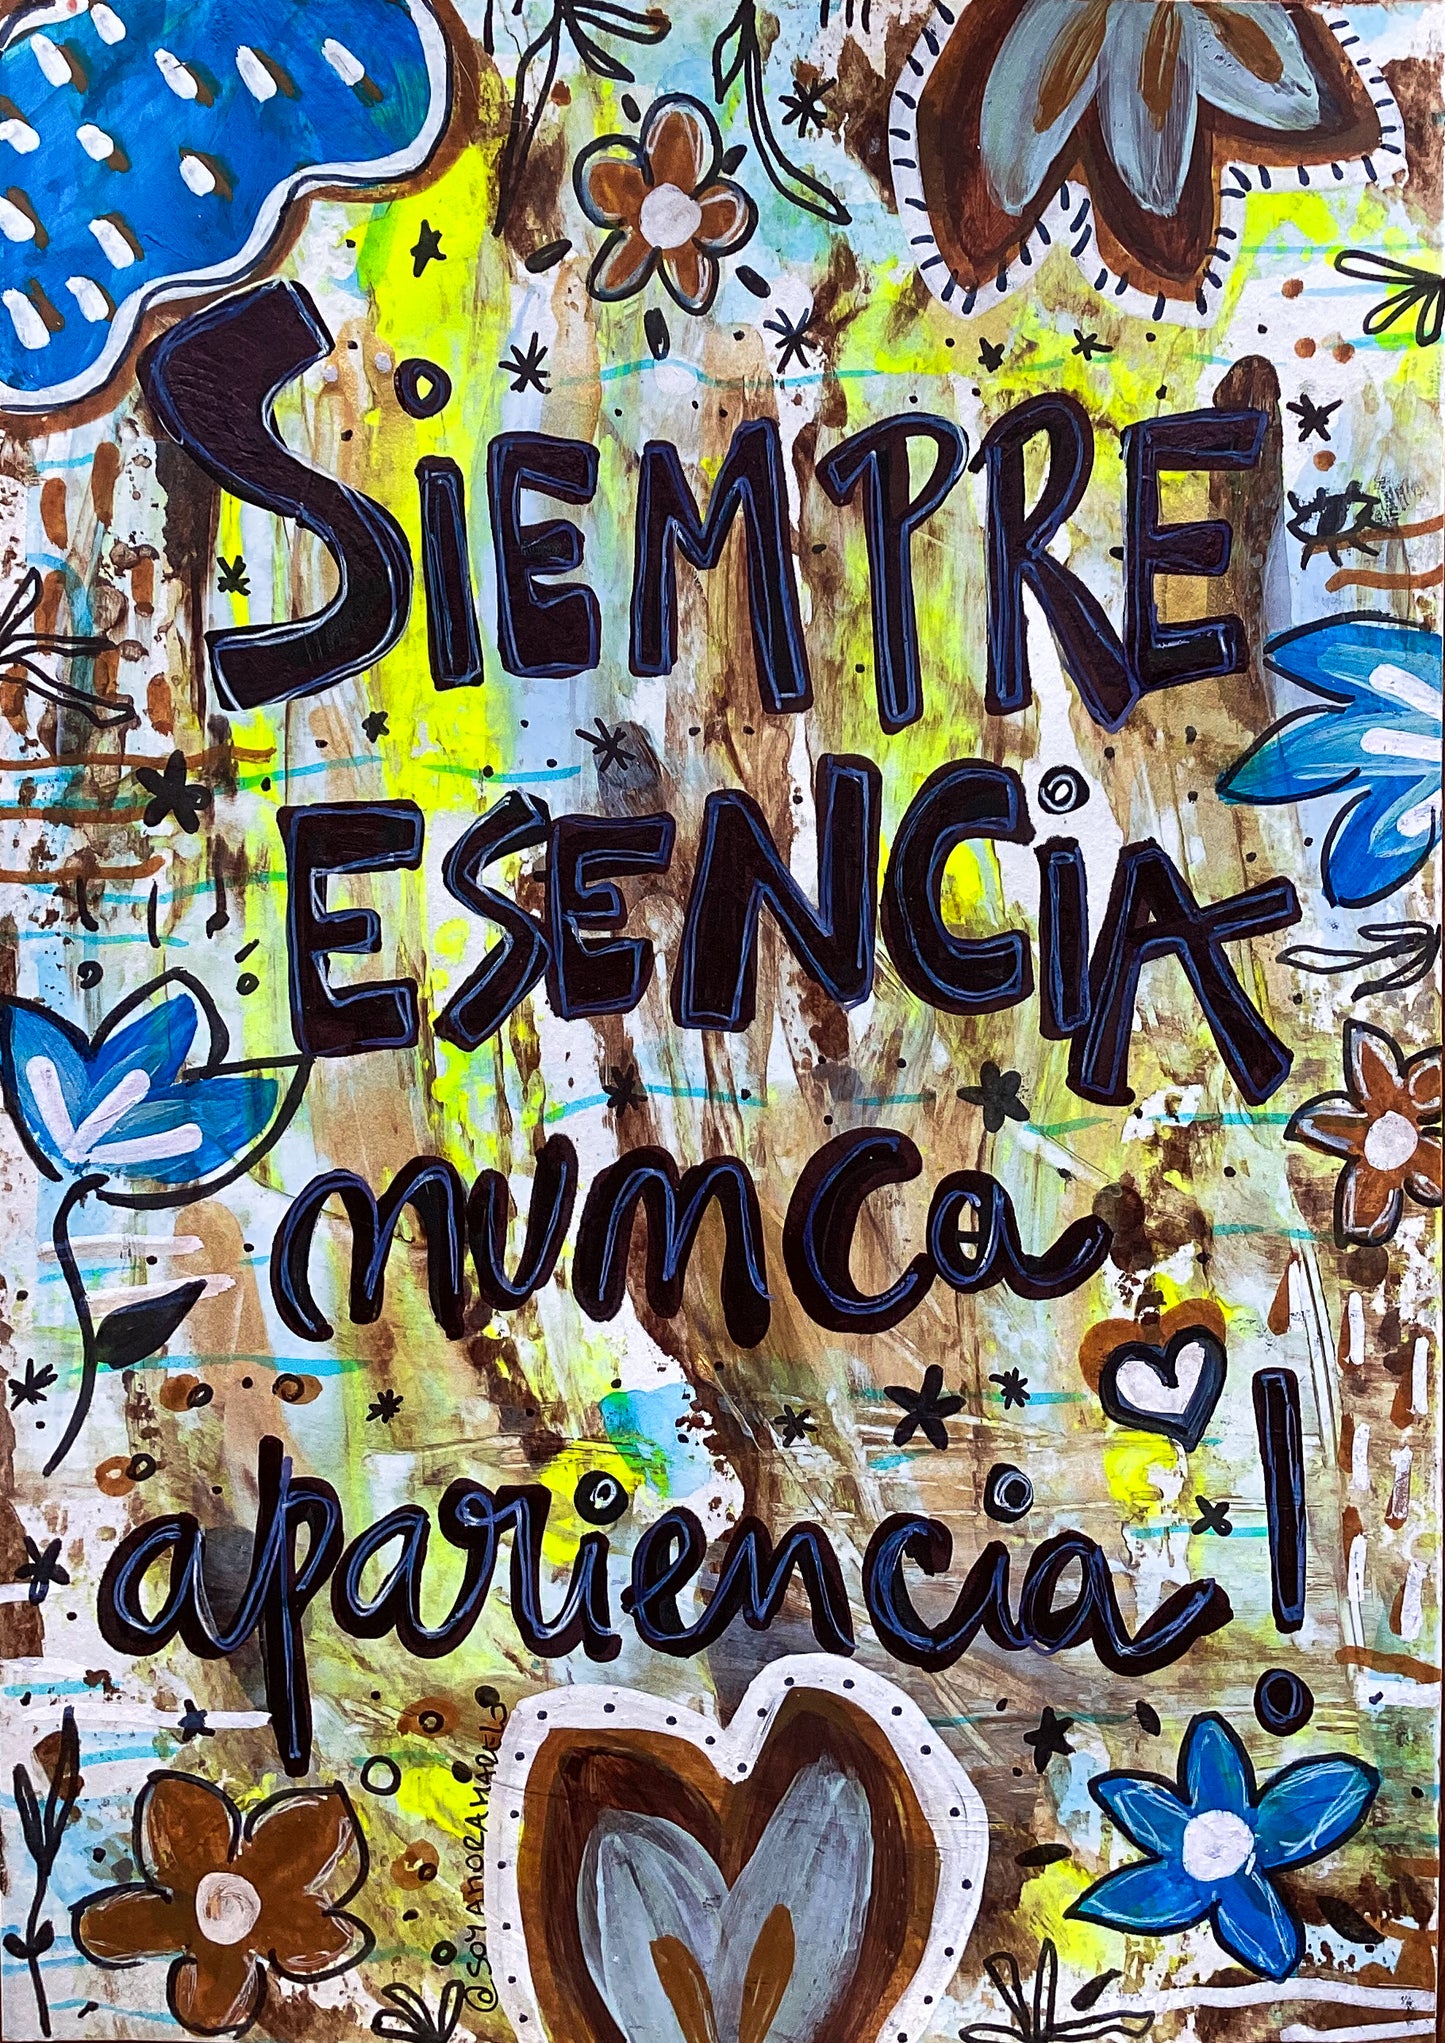 SiEMPRE
ESENCiA
nunca
apariencia!
@SOYANDORAMARELO